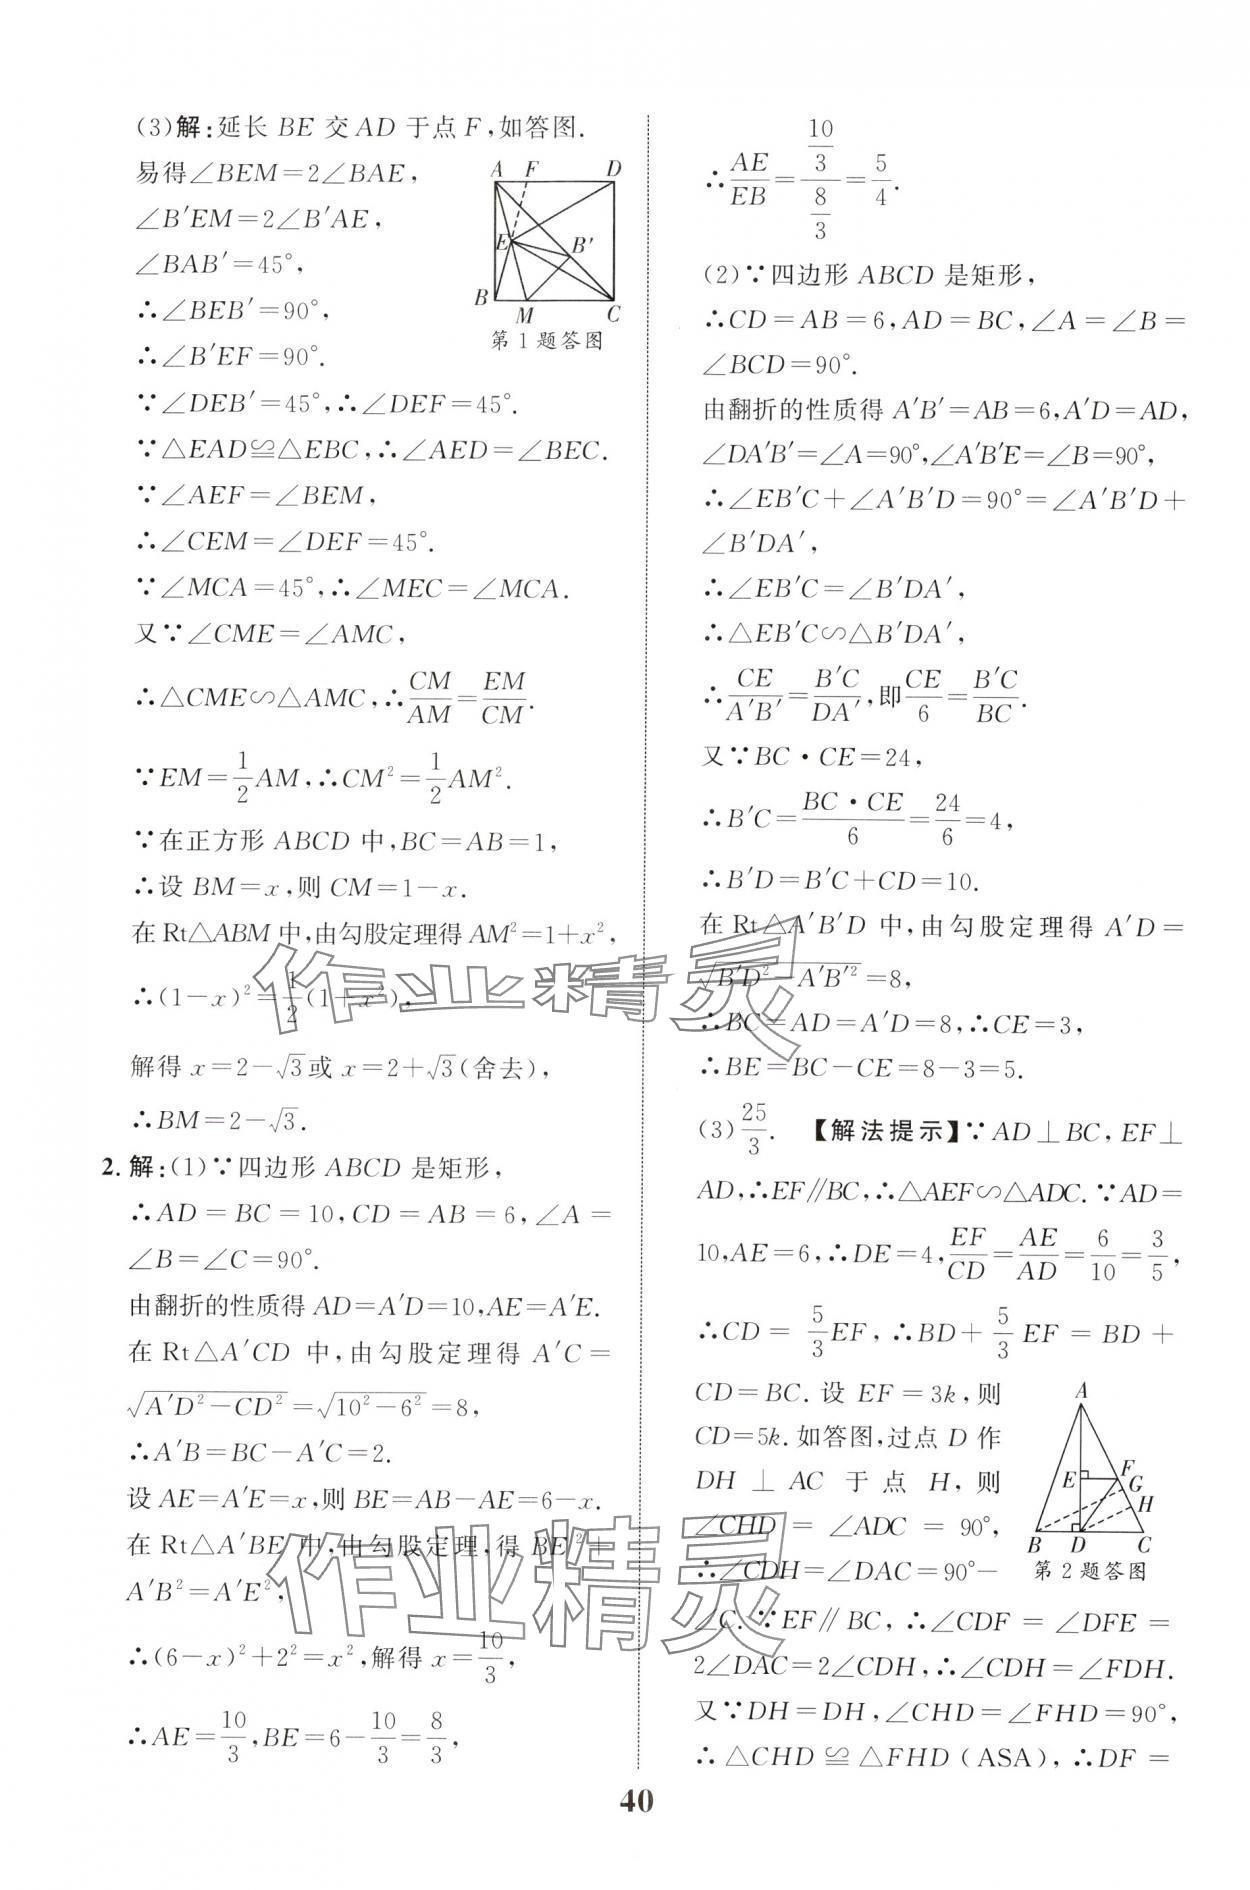 (3)解:延长 BE 交 AD 于点 F,如答图.
易得∠BEM=2∠BAE,
∠B′EM=2∠B′AE,
∠BAB′=45°,
∴∠BEB′=90°,
∴∠B′EF=90°.
A F D
E B′
B M C
第 1 题答图
∵∠DEB′=45°,∴∠DEF=45°.
∵△EAD≌△EBC,∴∠AED=∠BEC.
∵∠AEF=∠BEM,
∴∠CEM=∠DEF=45°.
∵∠MCA=45°,∴∠MEC=∠MCA.
又∵∠CME=∠AMC,
∴△CME∽△AMC,∴CM/AM=EM/CM.
∵EM=1/2AM,∴CM²=1/2AM².
∵在正方形 ABCD 中,BC=AB=1,
∴设 BM=x,则 CM=1-x.
在 Rt△ABM 中,由勾股定理得 AM²=1+x²,
∴(1-x)²=1/2(1+x²),
解得 x=2-√3或 x=2+√3(舍去),
∴BM=2-√3.
2.解:(1)∵四边形 ABCD 是矩形,
∴AD=BC=10,CD=AB=6,∠A=
∠B=∠C=90°.
由翻折的性质得 AD=A′D=10,AE=A′E.
在 Rt△A′CD 中,由勾股定理得 A′C=
√(A′D²-CD²)=√(10²-6²)=8,
∴A′B=BC-A′C=2.
设 AE=A′E=x,则 BE=AB-AE=6-x.
在 Rt△A′BE 中,由勾股定理,得 BE²+
A′B²=A′E²,
∴(6-x)²+2²=x²,解得 x=10/3,
∴AE=10/3,BE=6-10/3=8/3,
∴AE/EB=(10/3)/(8/3)=5/4.
(2)∵四边形 ABCD 是矩形,
∴CD=AB=6,AD=BC,∠A=∠B=
∠BCD=90°.
由翻折的性质得 A′B′=AB=6,A′D=AD,
∠DA′B′=∠A=90°,∠A′B′E=∠B=90°,
∴∠EB′C+∠A′B′D=90°=∠A′B′D+
∠B′DA′,
∴∠EB′C=∠B′DA′,
∴△EB′C∽△B′DA′,
∴CE/A′B′=B′C/DA′,即CE/6=B′C/BC.
又∵BC·CE=24,
∴B′C=BC·CE/6=24/6=4,
∴B′D=B′C+CD=10.
在 Rt△A′B′D 中,由勾股定理得 A′D=
√(B′D²-A′B′²)=8,
∴BC=AD=A′D=8,∴CE=3,
∴BE=BC-CE=8-3=5.
(3)25/3. 【解法提示】∵AD⊥BC,EF⊥
AD,∴EF∥BC,∴△AEF∽△ADC.∵AD=
10,AE=6,∴DE=4,EF/CD=AE/AD=6/10=3/5,
∴CD=5/3EF,∴BD+5/3EF=BD+
CD=BC.设 EF=3k,则
CD=5k.如答图,过点 D 作
DH⊥AC 于点 H,则
∠CHD=∠ADC=90°,
∴∠CDH=∠DAC=90°-
A
E F
G
H
B D C
第 2 题答图
∠C.∵EF∥BC,∴∠CDF=∠DFE=
2∠DAC=2∠CDH,∴∠CDH=∠FDH.
又∵DH=DH,∠CHD=∠FHD=90°,
∴△CHD≌△FHD(ASA),∴DF=
40
作业精灵
作业精灵